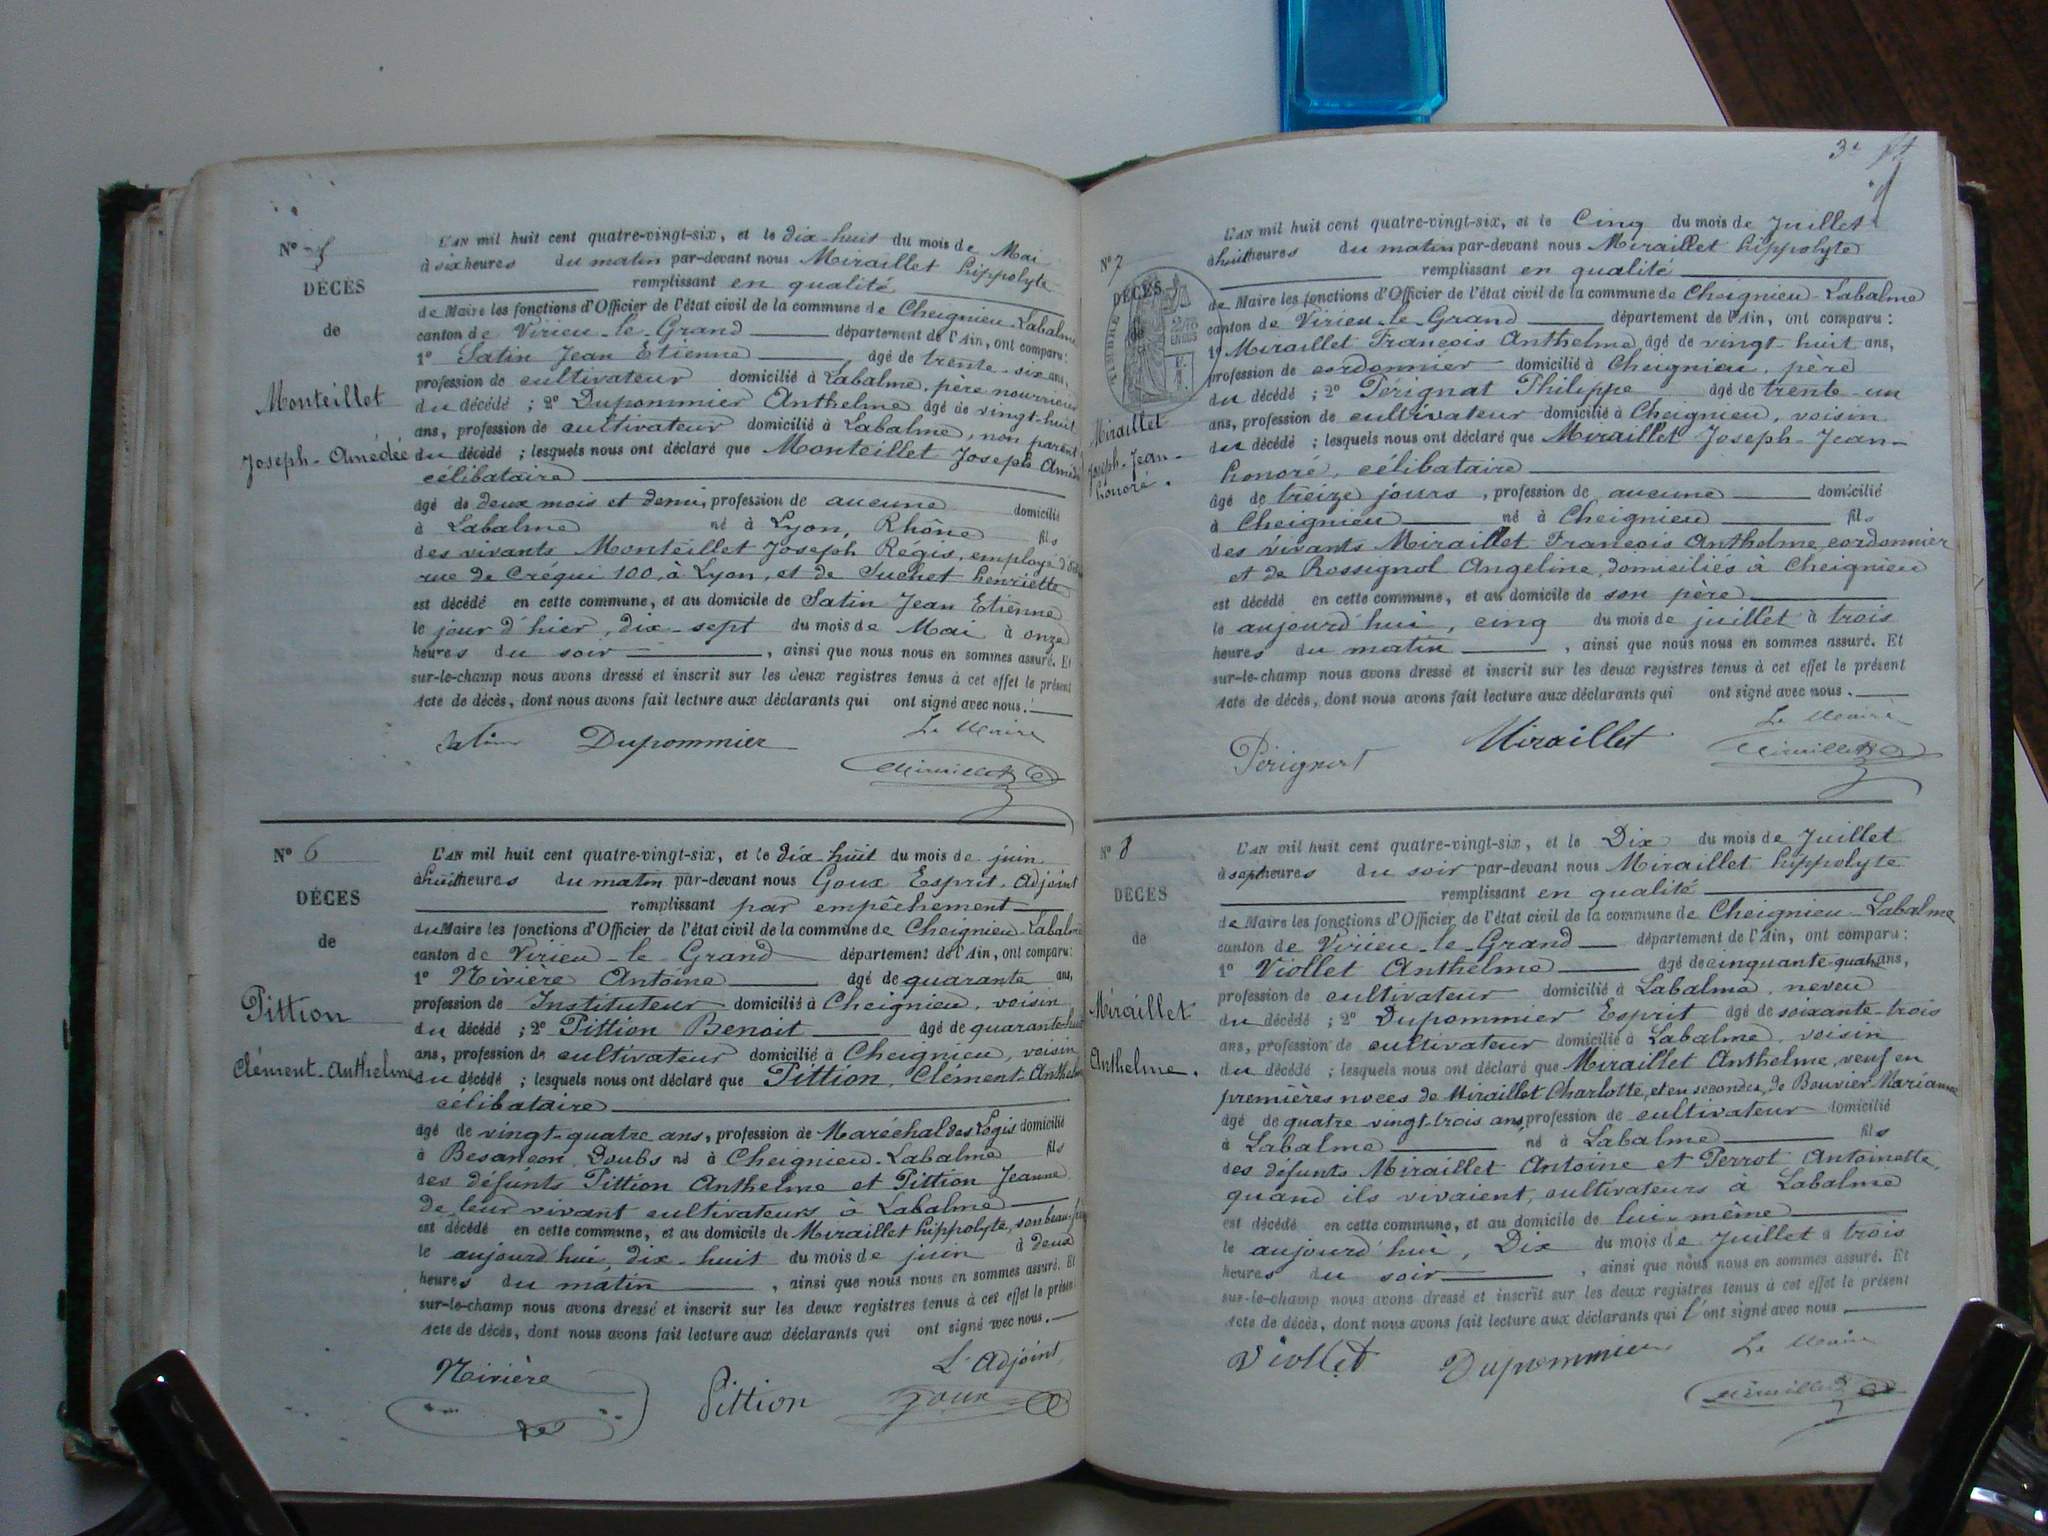 N° 5
DÉCÈS
de
Monteillet
Joseph-Amédée
L'AN mil huit cent quatre-vingt-six, et le dix-huit du mois de Mai
à six heures du matin par-devant nous Miraillet hippolyte
remplissant en qualité
de Maire les fonctions d'Officier de l'état civil de la commune de Cheignieu-Labalme
canton de Virieu-le-Grand département de l'Ain, ont comparu:
1° Satin Jean Etienne âgé de trente-six ans,
profession de cultivateur domicilié à Labalme, père nourricier
du décédé ; 2° Dupommier Anthelme âgé de vingt-huit
ans, profession de cultivateur domicilié à Labalme, non parent
du décédé ; lesquels nous ont déclaré que Monteillet Joseph Amédé
célibataire
âgé de deux mois et demi, profession de aucune domicilié
à Labalme né à Lyon, Rhône fils
des vivants Monteillet Joseph Régis, employé
rue de Créqui 100, à Lyon, et de Suchet henriette
est décédé en cette commune, et au domicile de Satin Jean Etienne
le jour d'hier, dix-sept du mois de Mai à onze
heures du soir, ainsi que nous nous en sommes assuré. Et
sur-le-champ nous avons dressé et inscrit sur les deux registres tenus à cet effet le présent
Acte de décès, dont nous avons fait lecture aux déclarants qui ont signé avec nous.
Le Maire
Satin Dupommier
Miraillet
N° 6
DÉCÈS
de
Pittion
Clément-Anthelme
L'AN mil huit cent quatre-vingt-six, et le dix-huit du mois de juin
à huit heures du matin par-devant nous Goux Esprit, Adjoint
remplissant par empêchement
du Maire les fonctions d'Officier de l'état civil de la commune de Cheignieu-Labalme
canton de Virieu-le-Grand département de l'Ain, ont comparu:
1° Nivière Antoine âgé de quarante ans,
profession de Instituteur domicilié à Cheignieu, voisin
du décédé ; 2° Pittion Benoit âgé de quarante-huit
ans, profession de cultivateur domicilié à Cheignieu, voisin
du décédé ; lesquels nous ont déclaré que Pittion, Clément-Anthelme
célibataire
âgé de vingt-quatre ans, profession de Maréchal des Logis domicilié
à Besançon, Doubs né à Cheignieu-Labalme fils
des défunts Pittion Anthelme et Pittion Jeanne
de leur vivant cultivateurs à Labalme
est décédé en cette commune, et au domicile de Miraillet hippolyte, son beau-frère
le aujourd'hui, dix-huit du mois de juin à deux
heures du matin, ainsi que nous nous en sommes assuré. Et
sur-le-champ nous avons dressé et inscrit sur les deux registres tenus à cet effet le présent
Acte de décès, dont nous avons fait lecture aux déclarants qui ont signé avec nous.
L'Adjoint
Nivière Pittion Goux
3e
N° 7
DÉCÈS
de
TIMBRE
Miraillet
Joseph-Jean-
honoré.
L'AN mil huit cent quatre-vingt-six, et le Cinq du mois de Juillet
à huit heures du matin par-devant nous Miraillet hippolyte
remplissant en qualité
de Maire les fonctions d'Officier de l'état civil de la commune de Cheignieu-Labalme
canton de Virieu-le-Grand département de l'Ain, ont comparu:
1° Miraillet François Anthelme âgé de vingt-huit ans,
profession de cordonnier domicilié à Cheignieu, père
du décédé ; 2° Pérignat Philippe âgé de trente-un
ans, profession de cultivateur domicilié à Cheignieu, voisin
du décédé ; lesquels nous ont déclaré que Miraillet Joseph-Jean-
honoré, célibataire
âgé de treize jours, profession de aucune domicilié
à Cheignieu né à Cheignieu fils
des vivants Miraillet François Anthelme, cordonnier
et de Rossignol Angeline, domiciliés à Cheignieu
est décédé en cette commune, et au domicile de son père
le aujourd'hui, cinq du mois de juillet à trois
heures du matin, ainsi que nous nous en sommes assuré. Et
sur-le-champ nous avons dressé et inscrit sur les deux registres tenus à cet effet le présent
Acte de décès, dont nous avons fait lecture aux déclarants qui ont signé avec nous.
Le Maire
Pérignat Miraillet
Miraillet
N° 8
DÉCÈS
de
Miraillet
Anthelme.
L'AN mil huit cent quatre-vingt-six, et le Dix du mois de Juillet
à sept heures du soir par-devant nous Miraillet hippolyte
remplissant en qualité
de Maire les fonctions d'Officier de l'état civil de la commune de Cheignieu-Labalme
canton de Virieu-le-Grand département de l'Ain, ont comparu:
1° Viollet Anthelme âgé de cinquante-quatre ans,
profession de cultivateur domicilié à Labalme, neveu
du décédé ; 2° Dupommier Esprit âgé de soixante-trois
ans, profession de cultivateur domicilié à Labalme, voisin
du décédé ; lesquels nous ont déclaré que Miraillet Anthelme, veuf en
premières noces de Miraillet Charlotte, et en secondes, de Bouvier Marianne
âgé de quatre vingt-trois ans, profession de cultivateur domicilié
à Labalme né à Labalme fils
des défunts Miraillet Antoine et Perrot Antoinette,
quand ils vivaient, cultivateurs à Labalme
est décédé en cette commune, et au domicile de lui-même
le aujourd'hui, Dix du mois de Juillet à trois
heures du soir, ainsi que nous nous en sommes assuré. Et
sur-le-champ nous avons dressé et inscrit sur les deux registres tenus à cet effet le présent
Acte de décès, dont nous avons fait lecture aux déclarants qui l'ont signé avec nous
Le Maire
Viollet Dupommier
Miraillet